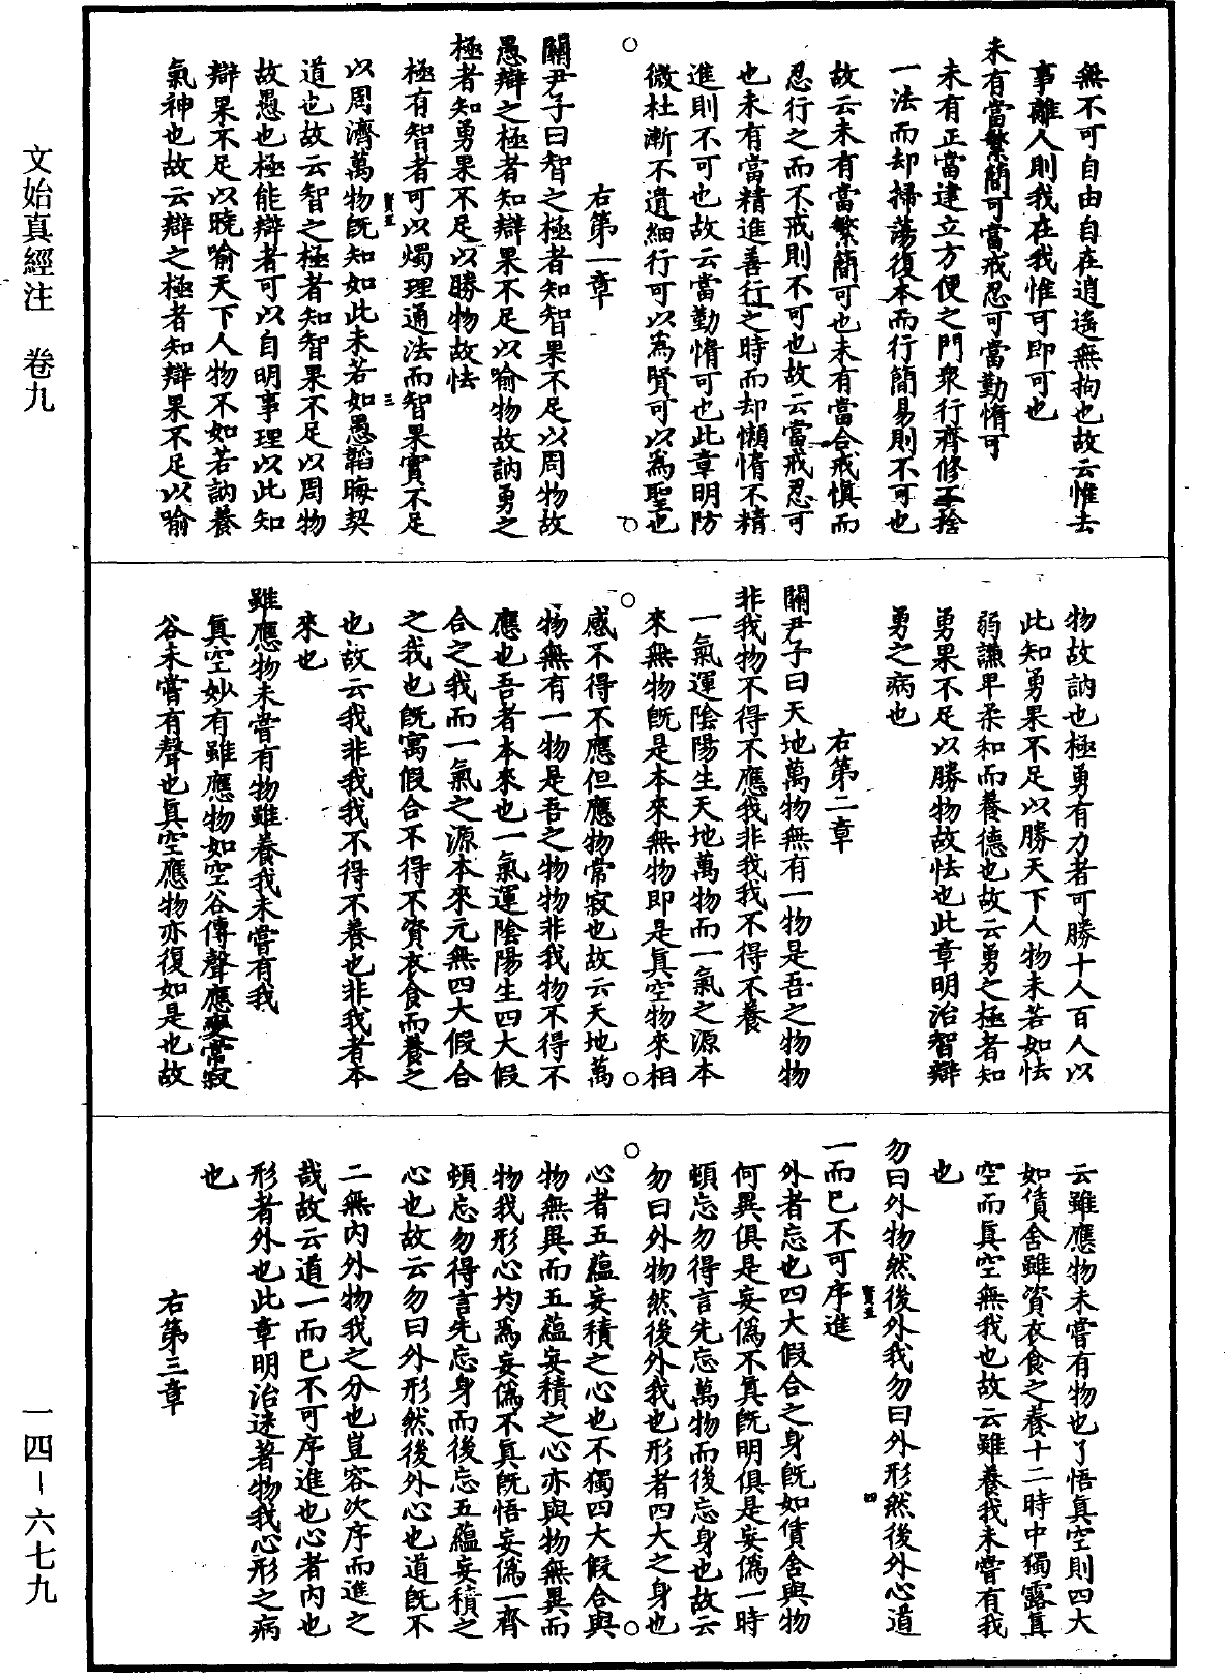 無不可自由自在逍遙無拘也故云惟去
事離人則我在我惟可即可也
未有當繁簡可當戒忍可當勤惰可
未有正當建立方便之門衆行齊修不捨
一法而却掃蕩復本而行簡易則不可也
故云未有當繁簡可也未有當合戒慎而
忍行之而不戒則不可也故云當戒忍可
也未有當精進善行之時而却懶惰不精
進則不可也故云當勤惰可也此章明防
微杜漸不遺細行可以為賢可以為聖也
右第一章
關尹子曰智之極者知智果不足以周物故
愚辯之極者知辯果不足以喻物故訥勇之
極者知勇果不足以勝物故怯
極有智者可以燭理通法而智果實不足
以周濟萬物既知如此未若如愚韜晦契
道也故云智之極者知智果不足以周物
故愚也極能辯者可以自明事理以此知
辯果不足以曉喻天下人物不如若訥養
氣神也故云辯之極者知辯果不足以喻
物故訥也極勇有力者可勝十人百人以
此知勇果不足以勝天下人物未若如怯
弱謙卑柔和而養德也故云勇之極者知
勇果不足以勝物故怯也此章明治智辯
勇之病也
右第二章
關尹子曰天地萬物無有一物是吾之物物
非我物不得不應我非我我不得不養
一氣運陰陽生天地萬物而一氣之源本
來無物既是本來無物即是真空物來相
感不得不應但應物常寂也故云天地萬
物無有一物是吾之物物非我物不得不
應也吾者本來也一氣運陰陽生四大假
合之我而一氣之源本來元無四大假合
之我也既寓假合不得不資衣食而養之
也故云我非我我不得不養也非我者本
來也
雖應物未嘗有物雖養我未嘗有我
真空妙有雖應物如空谷傳聲應變常寂
谷未嘗有聲也真空應物亦復如是也故
云雖應物未嘗有物也了悟真空則四大
如債舍雖資衣食之養十二時中獨露真
空而真空無我也故云雖養我未嘗有我
也
勿曰外物然後外我勿曰外形然後外心道
一而已不可序進
外者忘也四大假合之身既如債舍與物
何異俱是妄偽不真既明俱是妄偽一時
頓忘勿得言先忘萬物而後忘身也故云
勿曰外物然後外我也形者四大之身也
心者五蘊妄積之心也不獨四大假合與
物無異而五蘊妄積之心亦與物無異而
物我形心均為妄偽不真既悟妄偽一齊
頓忘勿得言先忘身而後忘五蘊妄積之
心也故云勿曰外形然後外心也道既不
二無內外物我之分也豈容次序而進之
哉故云道一而已不可序進也心者內也
形者外也此章明治迷著物我心形之病
也
右第三章
文始真經注　卷九
一四-六七九